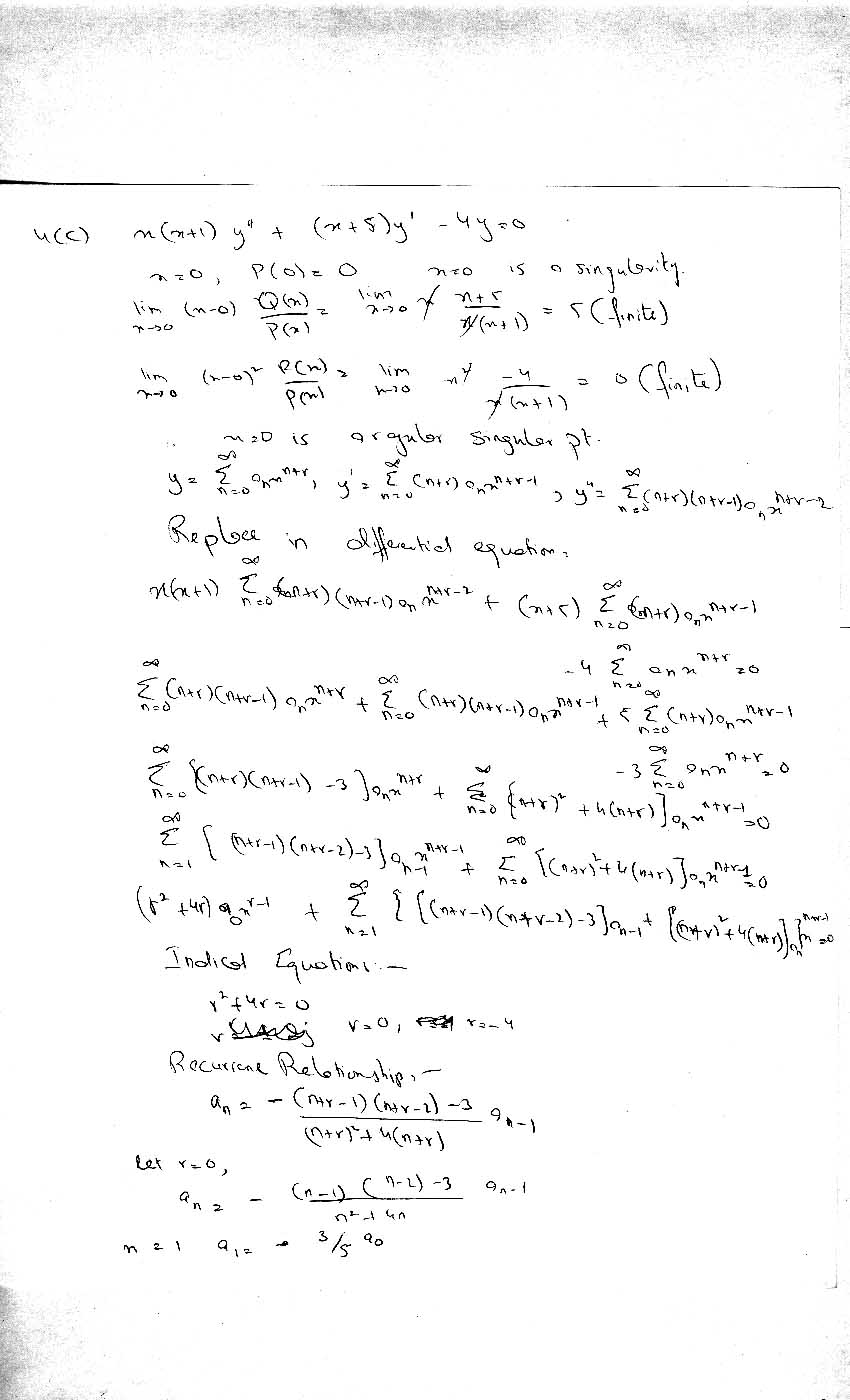 4(c) x(x+1) y" + (x+5)y' - 4y=0
x=0, P(0)=0 x=0 is a singularity.
lim x→0 (x-0) Q(x)/P(x) = lim x→0 x (x+5)/(x(x+1)) = 5 (finite)
lim x→0 (x-0)² R(x)/P(x) = lim x→0 x² -4/(x(x+1)) = 0 (finite)
∴ x=0 is a regular singular pt.
y = ∑_{n=0}^∞ a_n x^{n+r}, y' = ∑_{n=0}^∞ (n+r) a_n x^{n+r-1}, y" = ∑_{n=0}^∞ (n+r)(n+r-1) a_n x^{n+r-2}
Replace in differential equation:
x(x+1) ∑_{n=0}^∞ (n+r)(n+r-1) a_n x^{n+r-2} + (x+5) ∑_{n=0}^∞ (n+r) a_n x^{n+r-1}
-4 ∑_{n=0}^∞ a_n x^{n+r} = 0
∑_{n=0}^∞ (n+r)(n+r-1) a_n x^{n+r} + ∑_{n=0}^∞ (n+r)(n+r-1) a_n x^{n+r-1} + 5 ∑_{n=0}^∞ (n+r) a_n x^{n+r-1}
-3 ∑_{n=0}^∞ a_n x^{n+r} = 0
∑_{n=0}^∞ [(n+r)(n+r-1) -3] a_n x^{n+r} + ∑_{n=0}^∞ [(n+r)² + 4(n+r)] a_n x^{n+r-1} = 0
∑_{n=1}^∞ [(n+r-1)(n+r-2)-3] a_{n-1} x^{n+r-1} + ∑_{n=0}^∞ [(n+r)² + 4(n+r)] a_n x^{n+r-1} = 0
(r² + 4r) a_0 x^{r-1} + ∑_{n=1}^∞ { [(n+r-1)(n+r-2)-3] a_{n-1} + [(n+r)² + 4(n+r)] a_n } x^{n+r-1} = 0
Indical Equation:-
r² + 4r = 0
r=0, r=-4
Recurrene Relationship:-
a_n = - ((n+r-1)(n+r-2)-3)/((n+r)² + 4(n+r)) a_{n-1}
Let r=0,
a_n = - ((n-1)(n-2)-3)/(n² + 4n) a_{n-1}
n=1 a_1 = 3/5 a_0